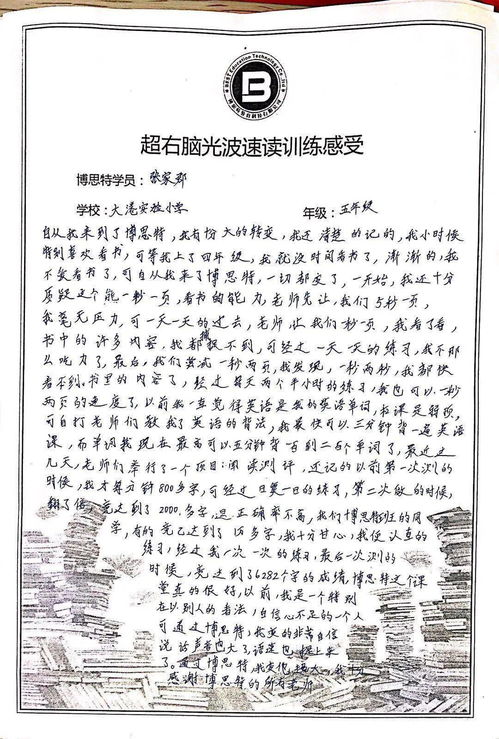 Best Education Technology Co.,Ltd
B
超右脑光波速读训练感受
博思特学员：张家郡
学校：大港实验小学 年级：五年级
自从我来到了博思特，我有份大的转变，我还清楚的记的，我小时候
特别喜欢看书，可等我上了四年级，我就没时间看书了，渐渐的，我
不爱看书了，可自从我来了博思特，一切都变了，一开始，我还十分
质疑这个能一秒一页，看书的能力，老师先让，我们5秒一页，
我毫无压力，可一天一天的过去，老师让我们一秒一页，我看了看，
书中的许多内容，我都找不到，可经过一天一天的练习，我不那
么吃力了，最后，我们尝试一秒两页，我发现，一秒两秒，我都快
看不到书里的内容了，经过每天两个半小时的练习，我也可以一秒
两页的速度了，以前我一直觉得英语是我的英语单词，书课是弱项，
可自打老师们教我了英语的背法，我最快可以三分钟背一遍英语
课，而单词我现在最高可以五分钟背一百到二百个单词了，最近这
几天，老师们举行了一个项目：阅读测评，还记的以前第一次测的
时候，我才每分钟800多字，可经过日复一日的练习，第二次做的时候，
翻了倍，竟达到了2000多字，但正确率不高，我们博思特班的同
学，有的竟已达到了1万多字，我十分甘心，我便认真的
练习，经过我一次一次的练习，最后一次测的
时候，竟达到了6282个字的成绩，博思特这个课
堂真的很好，以前，我是一个特别
在以别人的看法，自信心不足的一个人
可通过博思特，我变的非常自信
说话声音也大了，语速也提上来
了。通过博思特，我变化超大，我十分
感谢博思特的所有老师